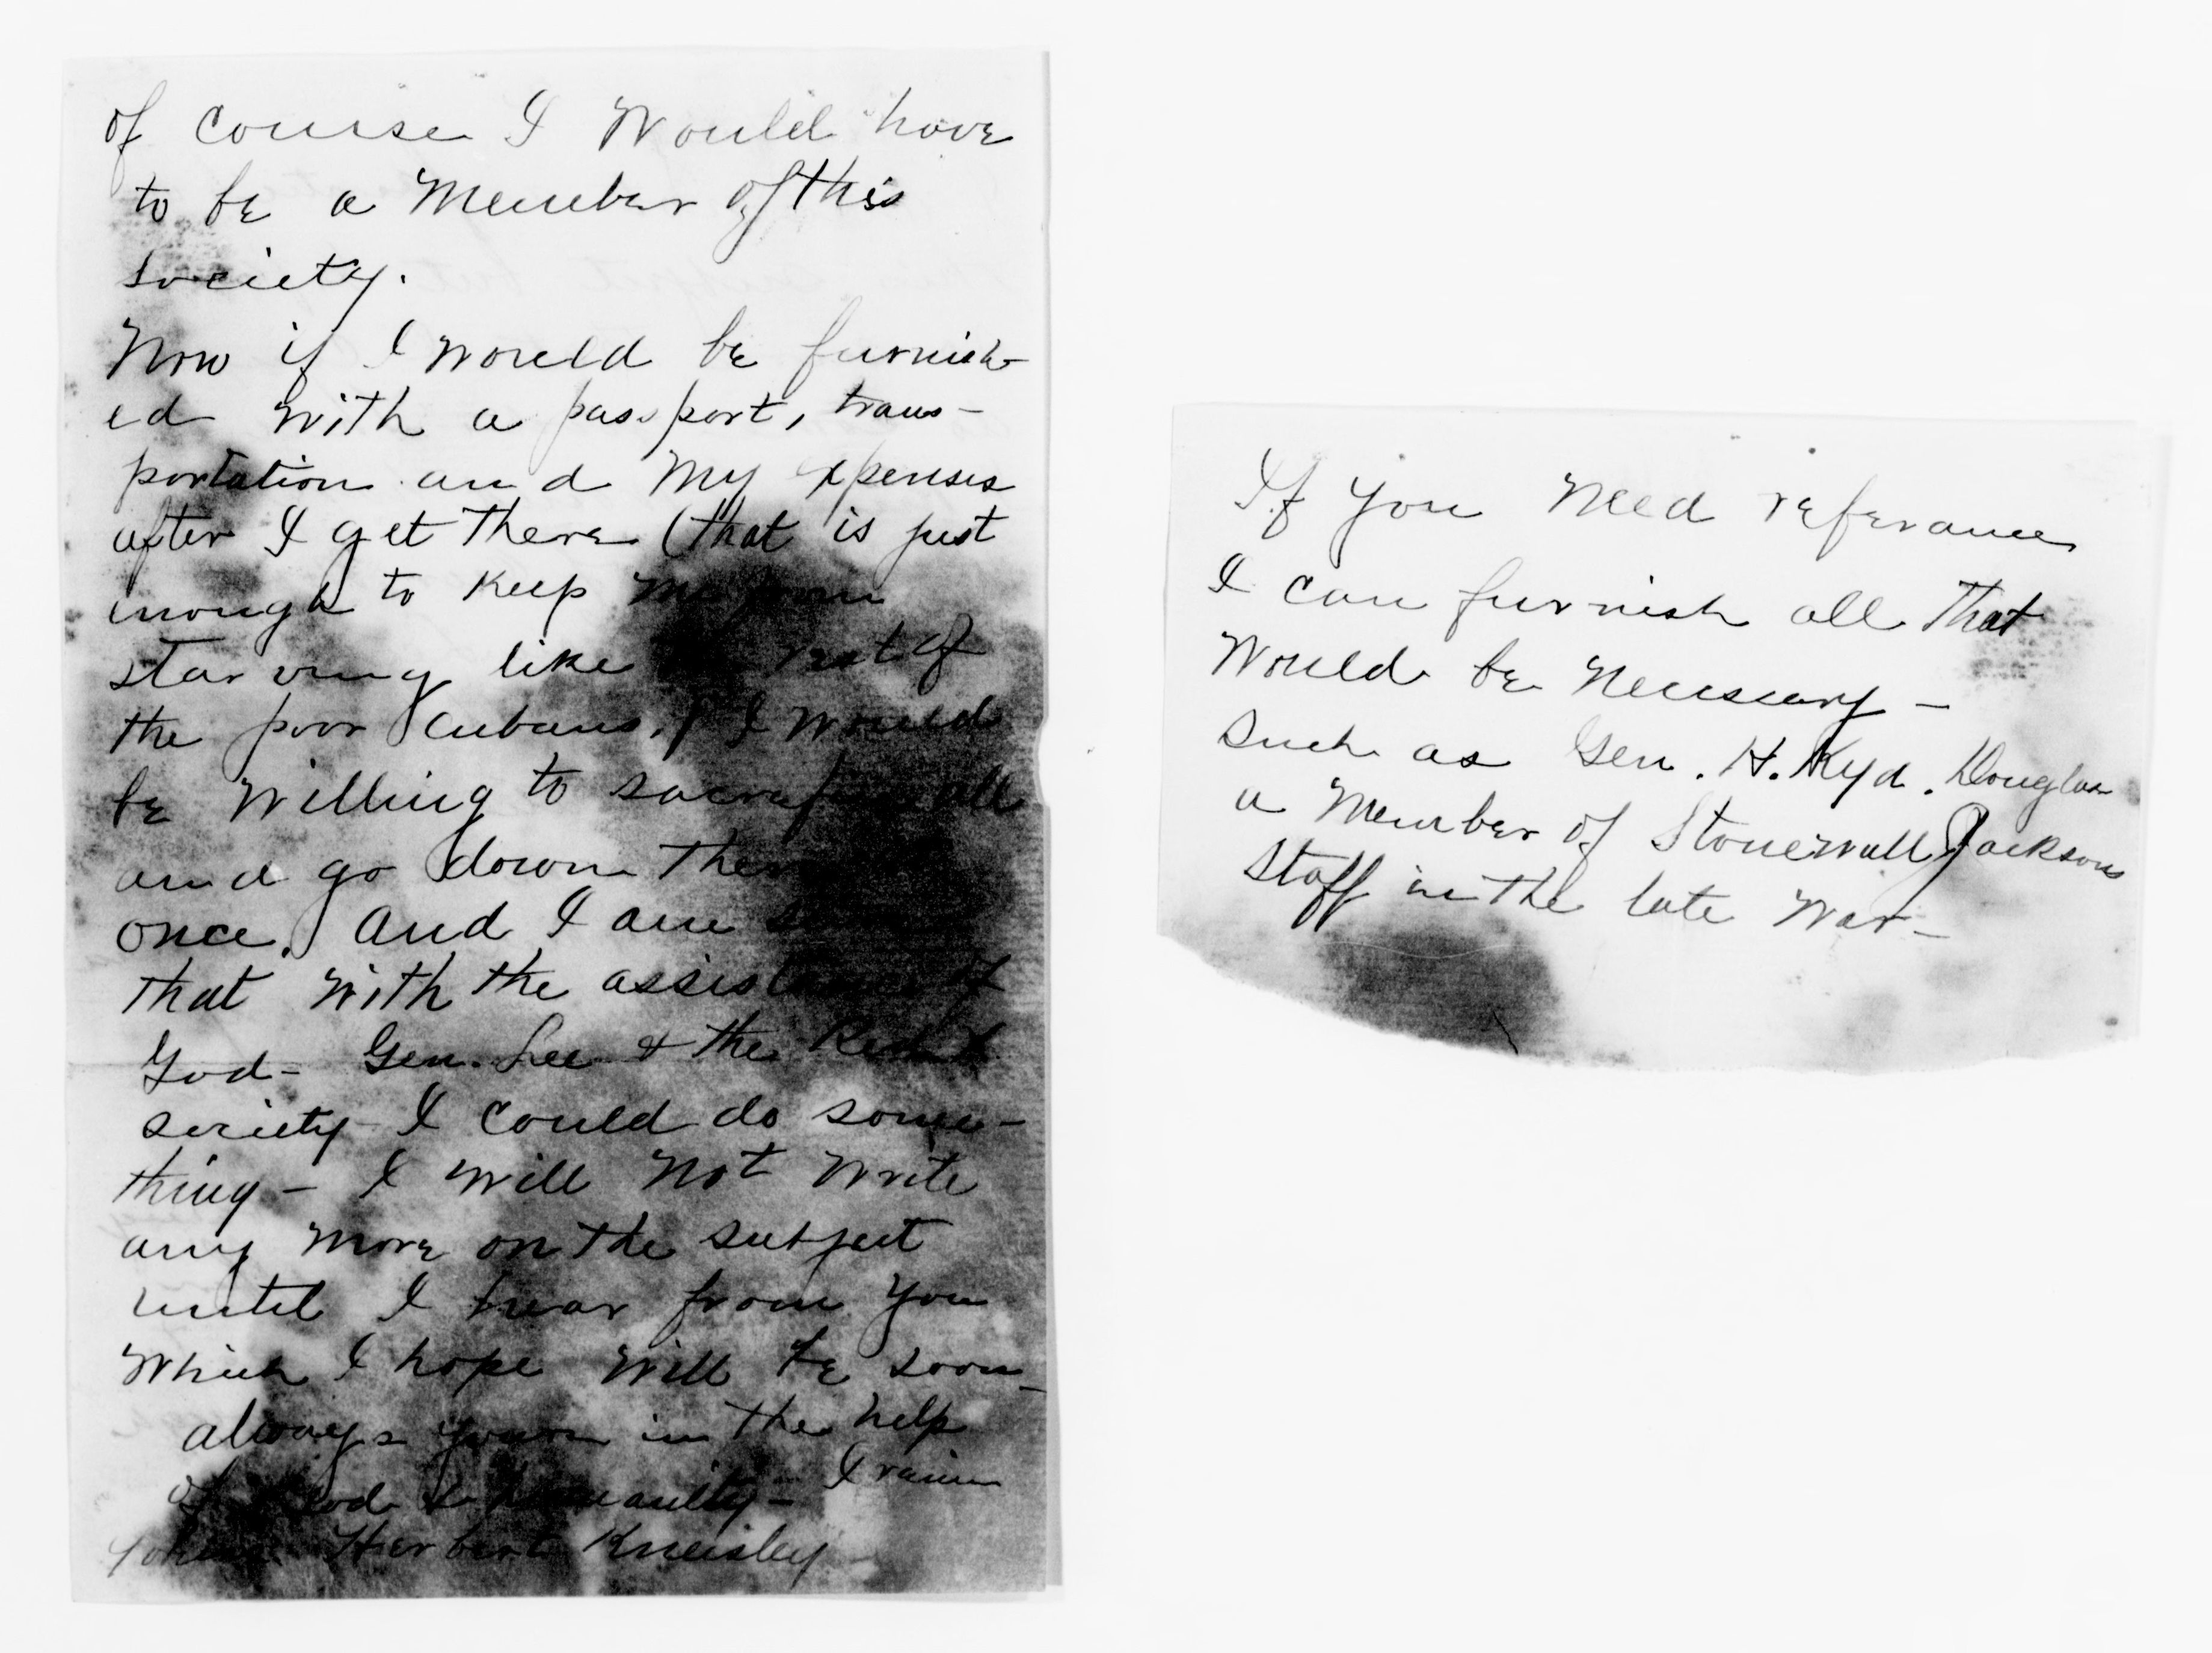 of course I Would have
to be a Member of this
society.
Now if I would be furnish-
ed with a passport, trans-
portation and My expenses
after I get there (that is just
enough to keep me from
starving like rest of
the poor Cubans.) I would
be Willing to all
and go down
once. And I am
that with the assistance of
God - Gen. Lee & the Red X
society - I could do some-
thing - I will Not Write
any More on the subject
until I hear from You
Which I hope Will be soon -
always yours in the help
of God & humanity - I
John Herbert Kneisley
If You Need referance
I can furnish all That
Would be Necessary -
Such as Gen. H. Kyd. Douglas
a Member of Stonewall Jacksons
Staff in the late War -